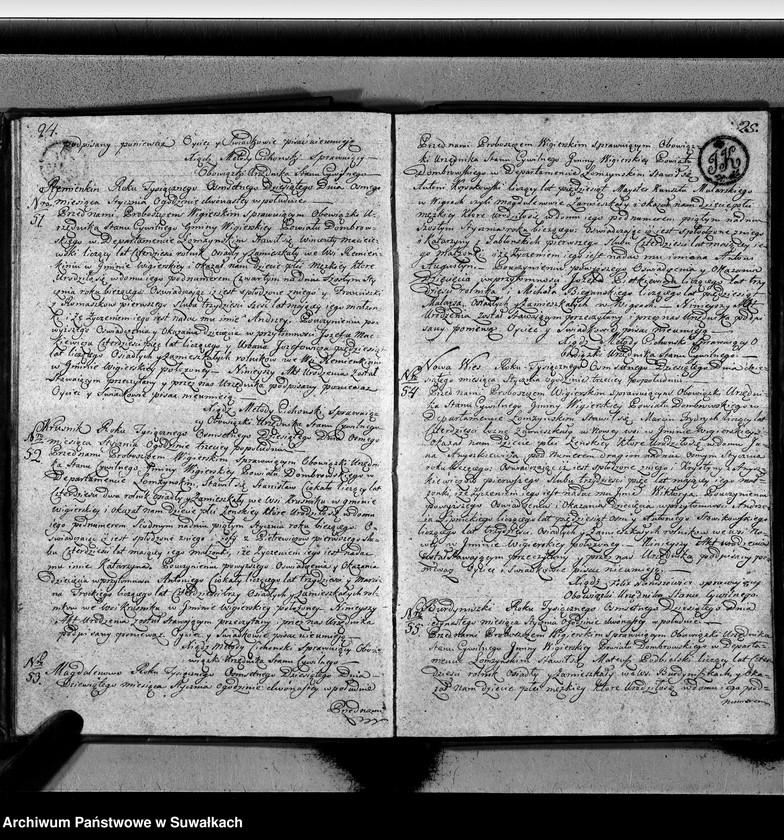 24.
podpisany poniewaz Oyciec y Swiadkowie pisac nieumieją
Xiądz Metody Cichonski Sprawuiący
Obowiązki Urzednika Stanu Cywilnego
Roku Tysiącznego Osmsetnego Dziesiątego Dnia Osmego
Nro miesiąca Stycznia Ogodzinie dwonastey wpołudnie
51. Przednami Proboszczem Wigierskim Sprawuiącym Obowiązki U-
rzednika Stanu Cywilnego Gminy Wigierskiey Powiatu Dombrow-
skiego w Departamencie Łomzynskim Stawił się Wincenty
liczący lat Czterdziesci rolnik Osiadły y Zamieszkały we Wsi
w Gminie Wigierskiey y okazał nam Dziecie płci Męzkiey Ktore
Urodziło się wdomu iego podnumerem Czwartym na dniu Szostym Sty-
cznia roku biezącego Oswiadczaiąc iz iest spłodzone zniego y Franciszki
z Tomaszkow pierwszego Slubu trzydziesci lat maiącey iego małzon-
ki, ize Zyczeniem iego iest nadac mu imie Andrzey. Pouczynieniu po-
wyzszego Oswiadczenia y Okazaniu dziecięcia w przytomnosci Jozefa
Czterdziesci lat liczącego y Urbana Jozefowicza pięćdziesiąt
lat liczącego Osiadłych y Zamieszkałych rolnikow we Wsi
w Gminie Wigierskiey połozoney. Ninieyszy Akt Urodzenia został
Stawaiącym przeczytany y przez nas Urzednika podpisany poniewaz
Oyciec y Swiadkowie pisac nieumieią
Xiądz Metody Cichonski Sprawuią-
cy Obowiązki Urzednika Stanu Cywilnego
Krusnik Roku Tysiącznego Osmsetnego Dziesiątego Dnia Osmego
Nro miesiąca Stycznia Ogodzinie trzeciey popołudniu
52. Przednami Proboszczem Wigierskim Sprawuiącym Obowiązki Urzedni-
ka Stanu Cywilnego Gminy Wigierskiey Powiatu Dombrowskiego w
Departamencie Łomzynskim, Stawił się Stanisław Ciokała liczący lat
Czterdziesci dwa rolnik osiadły y Zamieszkały we Wsi Krusniku w Gminie
Wigierskiey y okazał nam Dziecie płci Zenskiey Ktore Urodziło się wdomu
iego podnumerem Siodmym nadniu piątym Stycznia roku biezącego. O-
swiadczaiąc iz iest spłodzone zniego y Zofij z Pietrewiczow pierwszego Slu-
bu Czterdziesci lat maiącey iego małzonki, ize Zyczeniem iego iest nadac
mu imie Katarzyna. Pouczynieniu powyzszego Oswiadczenia y Okazania
dziecięcia wprzytomnosci Antoniego Ciokały liczącego lat trzydziesci y Marci-
na liczącego lat Czterdziesci Osiadłych y Zamieszkałych rol-
nikow we Wsi Krusniku w Gminie Wigierskiey połozoney. Ninieyszy
Akt Urodzenia został Stawaiącym przeczytany y przez nas Urzednika
podpisany poniewaz Oyciec y Swiadkowie pisac nieumieią
Xiądz Metody Cichonski Sprawuiący Obo-
wiązki Urzednika Stanu Cywilnego
Nro Magdalenowo Roku Tysiącznego Osmsetnego Dziesiątego Dnia
53. Dziewiątego miesiąca Stycznia ogodzinie dwonastey w południe
Przednami
25.
Przednami Proboszczem Wigierskim Sprawuiącym Obowiąz-
ki Urzednika Stanu Cywilnego Gminy Wigierskiey Powiatu
Dombrowskiego w Departamencie Łomzynskim Stawił się
Antoni liczący lat pięćdziesiąt Mayster Kunsztu Malarskiego
w Wigrach czyli Magdalenowie Zamieszkały y okazał nam dziecie płci
męzkiey Ktore urodziło się wdomu iego pod numerem piątym nadniu
Szostym Stycznia roku biezącego Oswiadczaiąc iz iest spłodzone zniego
y Katarzyny z Jabłonskich pierwszego Slubu Czterdziesci lat maiącey ie-
go Małzonki ize Zyczeniem iego iest nadac mu imiona Antoni
Augustyn. Pouczynieniu powyzszego Oswiadczenia y Okazania
Dziecięcia w przytomnosci Jozefa liczącego lat trzy-
dziesci rolnika y Michała liczącego lat pięćdziesiąt
Malarza, Osiadłych y Zamieszkałych w Wigrach. Ninieyszy Akt
Urodzenia został Stawaiącym przeczytany y przez nas Urzednika podpi-
sany poniewaz Oyciec y Swiadkowie pisac nieumieią
Xiądz Metody Cichonski Sprawuiący O-
bowiązki Urzednika Stanu Cywilnego
Nowa Wies Roku Tysiącznego Osmsetnego Dziesiątego Dnia
Nro miesiąca Stycznia ogodzinie trzeciey popołudniu
54. Przed nami Proboszczem Wigierskim Sprawuiącym Obowiązki Urzedni-
ka Stanu Cywilnego Gminy Wigierskiey Powiatu Dombrowskiego w
Departamencie Łomzynskim Stawił się Maciey liczący lat
Czterdziesci Zamieszkały w Nowey wsi w Gminie Wigierskiey y
Okazał nam dziecie płci Zenskiey Ktore urodziło się wdomu Ja-
na pod Numerem nadniu osmym Stycznia
roku biezącego. Oswiadczaiąc iz iest spłodzone zniego y Krystyny
pierwszego Slubu trzydziesci pięć lat maiącey iego mał-
zonki, ize Zyczeniem iego iest nadac mu Jmie Wiktorya. Pouczynieniu
powyzszego Oswiadczenia y Okazania Dziecięcia w przytomnosci Andrze-
ia Lipnickiego liczącego lat pięćdziesiąt Osm y
liczącego lat Osiadłych y Zamieszkałych rolnikow we wsi No-
wey w Gminie Wigierskiey połozoney. Ninieyszy Akt Urodzenia
został Stawaiącym przeczytany y przez nas Urzednika podpisany po-
niewaz Oyciec y Swiadkowie pisac nieumieią
Xiądz Felix Januszewicz sprawuiący
Obowiązki Urzednika Stanu Cywilnego
Nro Burdyniszki Roku Tysiącznego Osmsetnego Dziesiątego dnia
miesiąca Stycznia Ogodzinie dwonastey w południe
55. Przednami Proboszczem Wigierskim Sprawuiącym Obowiązki Urzednika
Stanu Cywilnego Gminy Wigierskiey Powiatu Dombrowskiego w Departa-
mencie Łomzynskim Stawił się Mateusz Podbielski liczący lat Czter-
dziesci rolnik Osiadły y Zamieszkały we Wsi Burdyniszkach y Oka-
zał nam dziecie płci męzkiey Ktore Urodziło się wdomu iego pod-
numerem
Archiwum Państwowe w Suwałkach